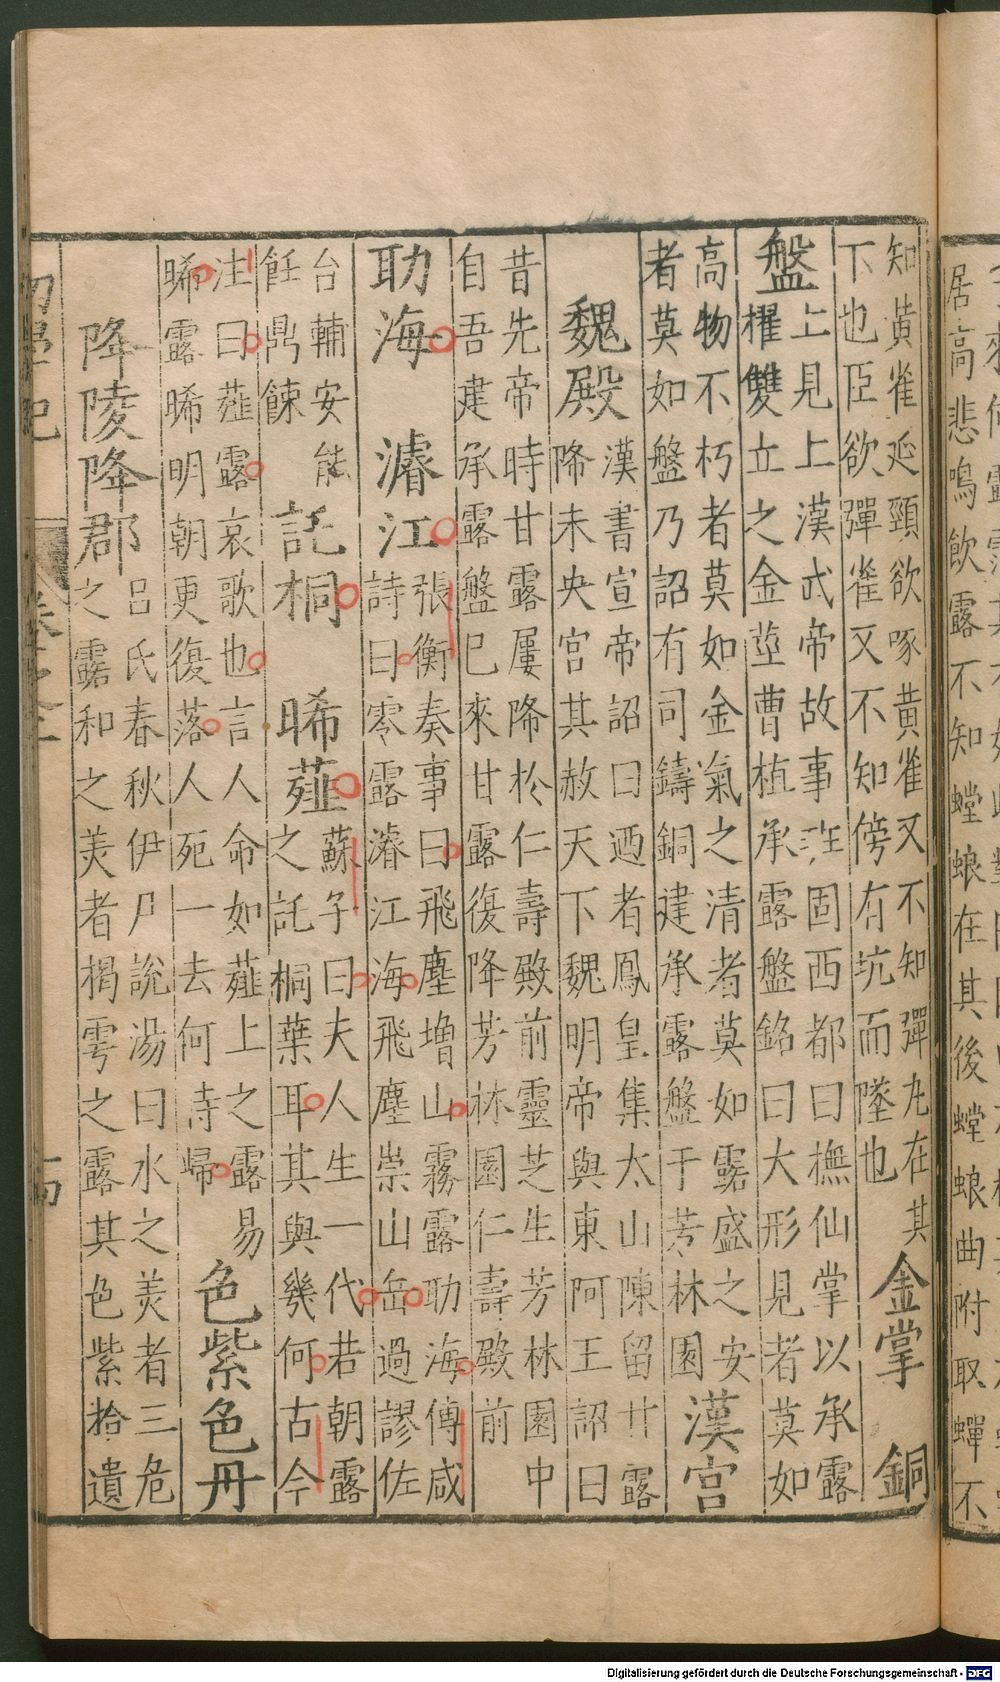 知黃雀延頸欲啄黃雀又不知彈丸在其
下也臣欲彈雀又不知傍有坑而墜也
金掌　銅
盤
上見上漢武帝故事班固西都曰撫仙掌以承露
櫂雙立之金莖曹植承露盤銘曰大形見者莫如
高物不朽者莫如金氣之清者莫如露盛之安
者莫如盤乃詔有司鑄銅建承露盤于芳林園
漢宮
魏殿
漢書宣帝詔曰迺者鳳皇集太山陳留甘露
降未央宮其赦天下魏明帝與東阿王詔曰
昔先帝時甘露屢降於仁壽殿前靈芝生芳林園中
自吾建承露盤已來甘露復降芳林園仁壽殿前
助海　濬江
張衡奏事曰飛塵增山霧露助海傅咸
詩曰零露濬江海飛塵崇山岳過謬佐
台輔安能
飪鼎餗
託桐　晞薤
蘇子曰夫人生一代若朝露
之託桐葉耳其與幾何古今
注曰薤露哀歌也言人命如薤上之露易
晞露晞明朝更復落人死一去何時歸
色紫色丹
降陵降郡
呂氏春秋伊尹說湯曰水之美者三危
之露和之美者揭雩之露其色紫拾遺
初學記
卷之二
居高悲鳴飲露不知螳蜋在其後螳蜋曲附取蟬不
Digitalisierung gefördert durch die Deutsche Forschungsgemeinschaft - DFG